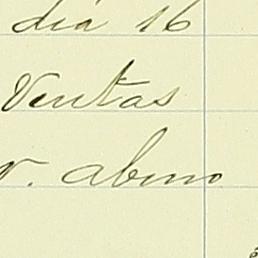 dia 16
Ventas
r. abono